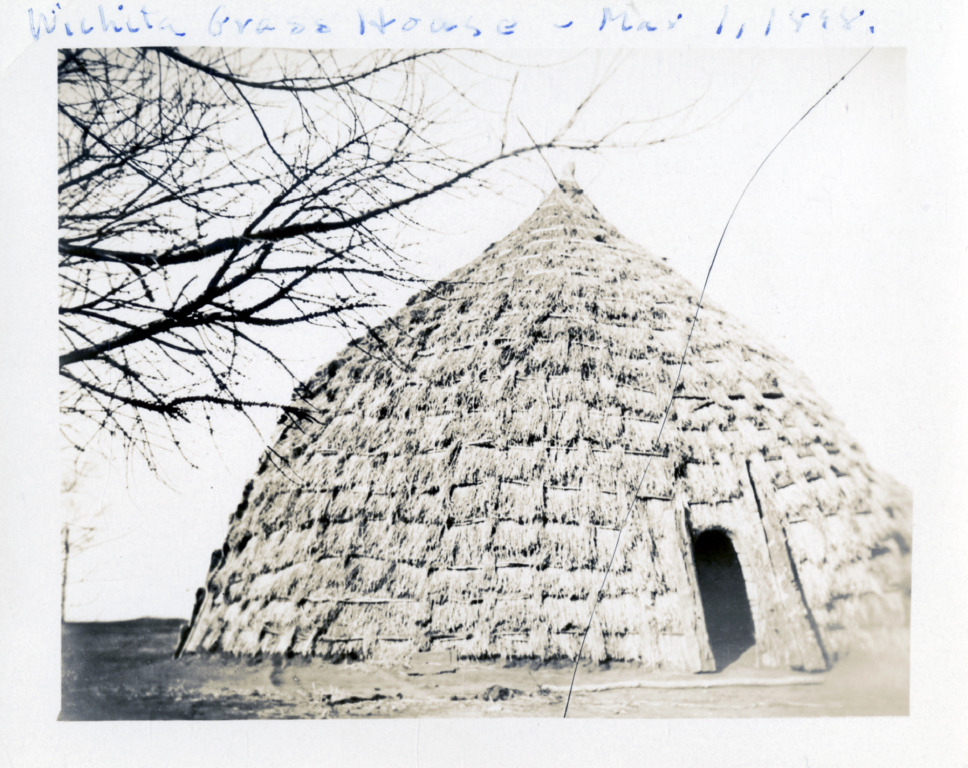 Wichita Grass House - Mar 1, 1898.